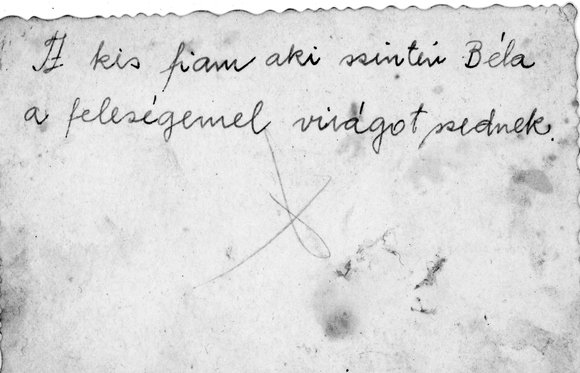 A kis fiam aki szintén Béla
a feleségemel virágot szednek.